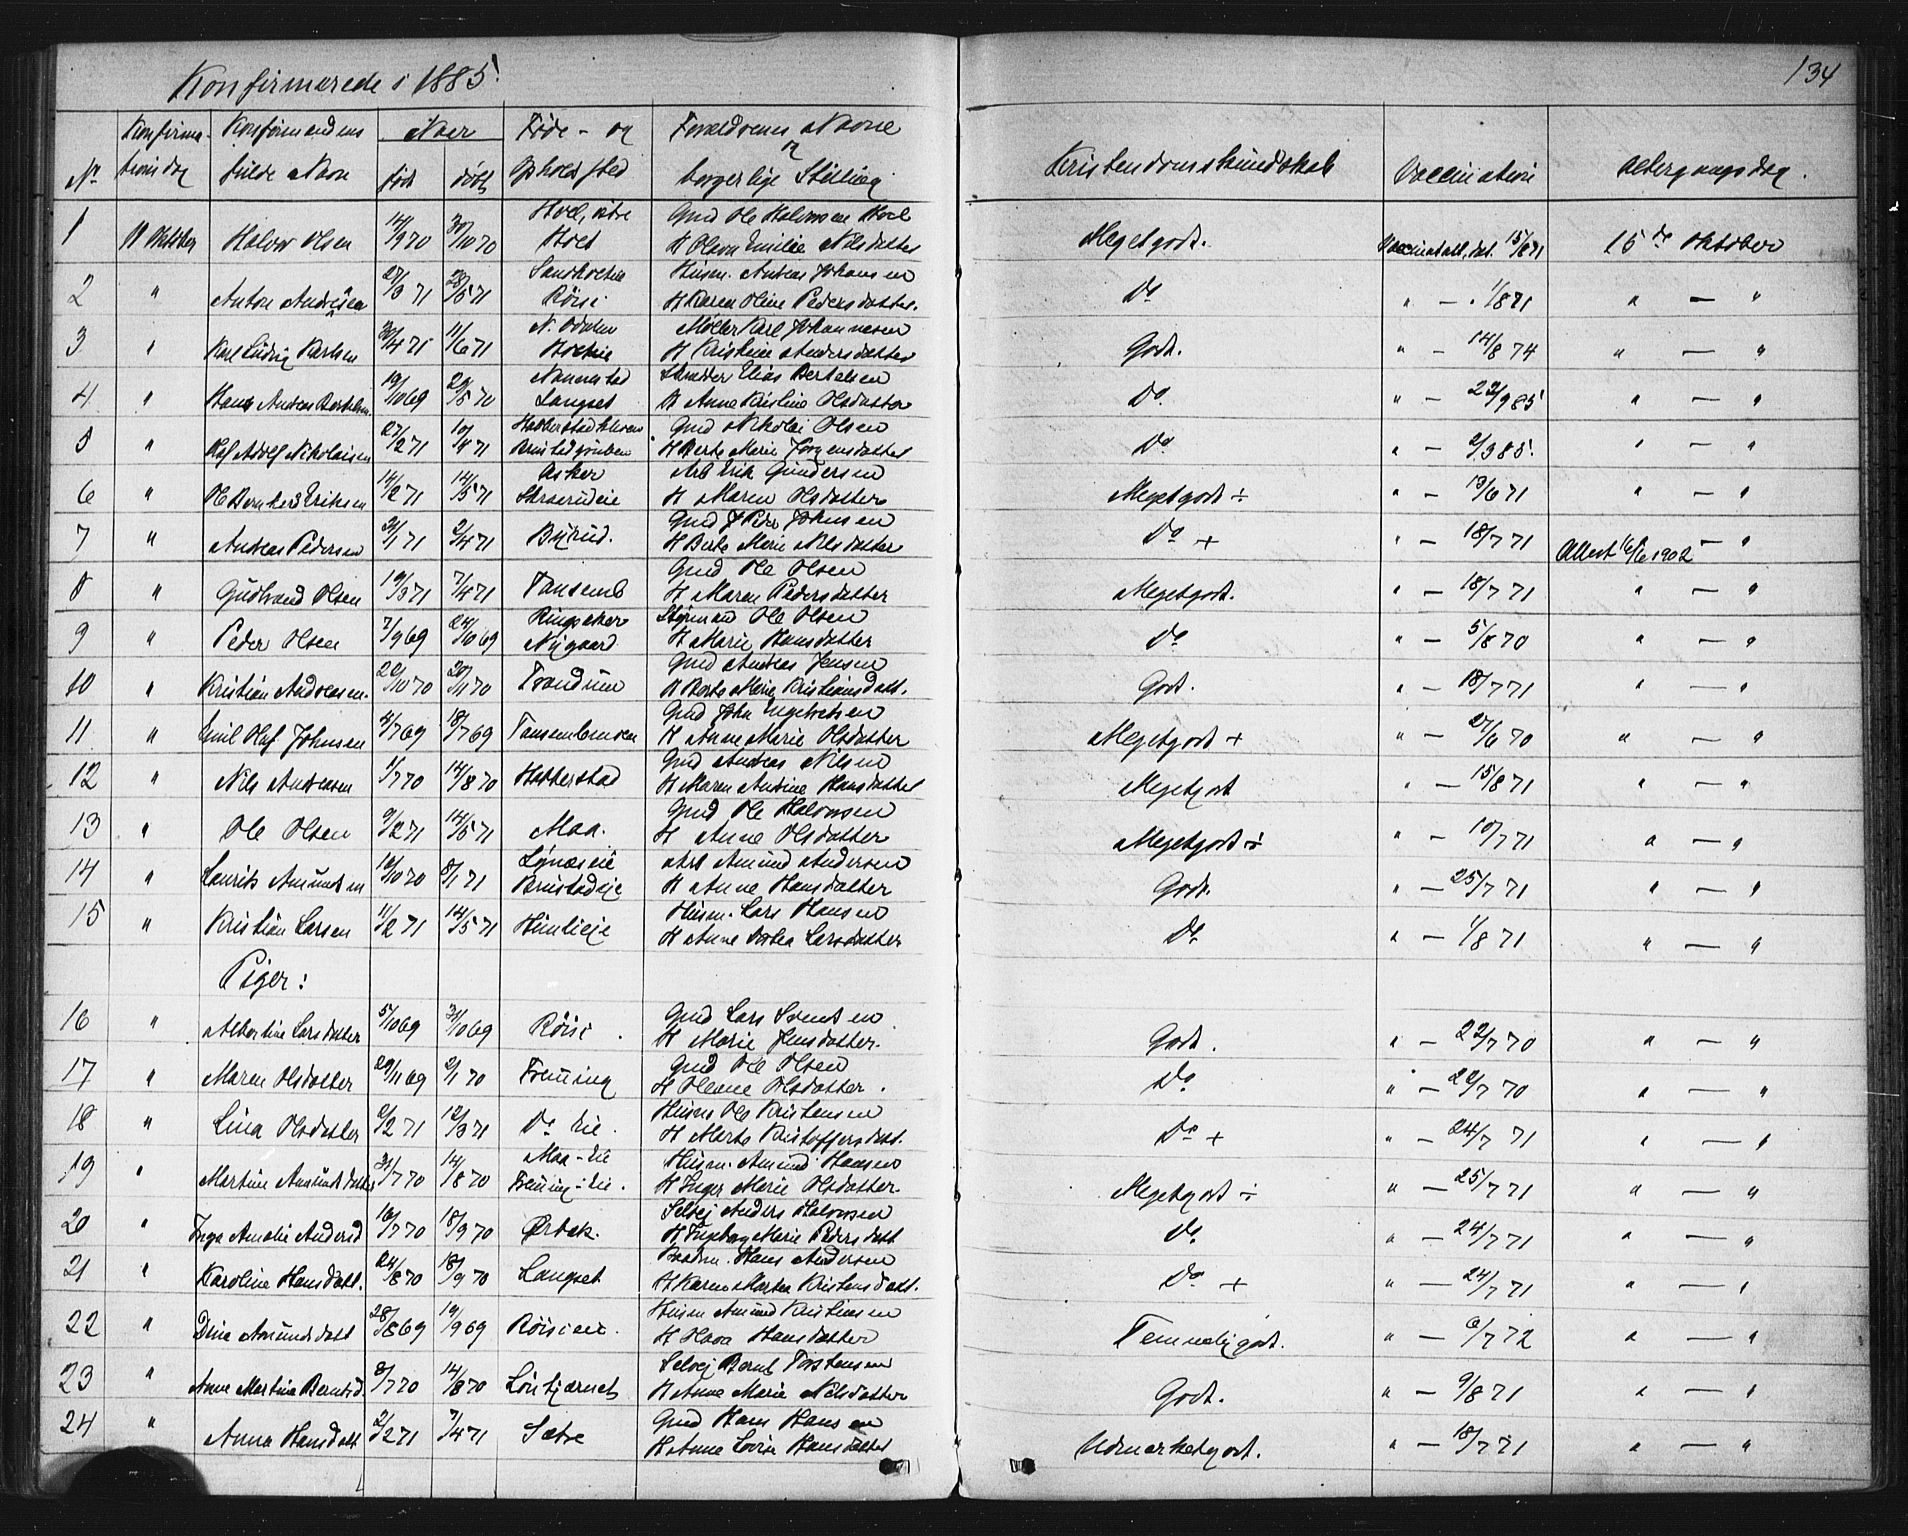 134
Konfirmerede i 1885.
No Konfirmationsdag Konfirmandens fulde Navn Naar født døbt Føde- og Opholdssted Forældrenes Navne og borgerlige Stilling Kristendomskundskab Vaccination Altergangsdag.
1 11 Oktober Halvor Olsen 14/9 70 30/10 70 Hoel, Hoel Gmd Ole Halvorsen Hoel H Emilie Nilsdatter Megetgodt. Vaccinat. att. dat. 15/8 71 15de Oktober
2 " Anton Andreasen 27/3 71 28/5 71 Røisi Husm. Andreas Johansen H Karen Oline Pedersdatter. Do " — " 1/8 71 " — "
3 " Karl Ludvig Karlsen 30/4 71 11/6 71 N. Odalen Møller Karl Johannesen H Kristine Andersdatter Godt. " — 14/8 74 " — "
4 " Hans Andreas Bertelsen 19/10 69 29/5 70 Nannestad Langset Skrædder Elias Bertelsen H Anne Kristine Olsdatter Do " — 22/9 85 " — "
5 " Adolf Nikolaisen 27/2 71 10/4 71 Gmd Nikolai Olsen H Berte Marie Jørgensdatter Do " — 2/3 85. " — "
6 " Ole Bernhard Eriksen 14/2 71 14/5 71 Asker Arb Erik Gundersen H Maren Olsdatter Megetgodt ÷ " — 13/6 71 " — "
7 " Andreas Pedersen 31/1 71 2/4 71 Byrud. Gmd Peder Johnsen H Berte Marie Nilsdatter Do + " — 18/7 71 Attest 16/6 1902 — "
8 " Gudbrand Olsen 19/3 71 7/4 71 Tansemb Gmd Ole Olsen H Maren Pedersdatter Megetgodt. " — 18/7 71 " — "
9 " Peder Olsen 7/9 69 24/10 69 Ringsaker Nygaard Styrmand Ole Olsen H Marie Hansdatter Do " — 5/8 70 " — "
10 " Kristian Andreasen. 22/10 70 20/11 70 Trandum Gmd Andreas Jensen H Berte Marie Kristiansdatt. Godt. " — 18/7 71 " — "
11 " Emil Olaf Johnsen 4/7 69 18/7 69 Tansembmoen Gmd John Engebretsen H Anne Marie Olsdatter Megetgodt + " — 27/6 70 " — "
12 " Nils Andreasen 1/7 70 14/8 70 Habberstad Gmd Andreas Nilsen H Maren Andrine Hansdatter Megetgodt " — 15/8 71 " — "
13 " Ole Olsen 9/2 71 14/5 71 Maa. Gmd Ole Halvorsen H Anne Olsdatter Megetgodt ÷ " — 10/7 71 " — "
14 " Laurits Amundsen 16/10 70 8/1 71 Brustadeie Arb Amund Andersen H Anne Hansdatter Godt. " — 25/7 71 " — "
15 " Kristian Larsen 11/2 71 14/5 71 Husm. Lars Hansen H Anne Larsdatter Do " — 1/8 71 " — "
Piger:
16 " Albertine Larsdatter 5/10 69 31/10 69 Røisi. Gmd Lars Svendsen H Marie Jensdatter. Godt. " — 22/7 70 " — "
17 " Maren Olsdatter 29/11 69 2/1 70 Frening Gmd Ole Olsen H Olene Olsdatter. Do " — 22/7 70 " — "
18 " Lina Olsdatter 2/2 71 12/3 71 Do eie. Husm Ole Kristensen H Marte Kristoffersdatt. Do + " — 24/7 71 " — "
19 " Martine Amundsdatter 31/7 70 14/8 70 Maa-eie Frening-eie. Husm. Amund Hansen H Inger Marie Olsdatter. Megetgodt ÷ " — 25/7 71 " — "
20 " Inga Amalie Andersd 16/7 70 18/9 70 Ørbæk. Selvej Anders Halvorsen H Ingeborg Marie Pedersdatt Do " — 24/7 71 " — "
21 " Karoline Hansdatt. 24/8 70 18/9 70 Langset. Hans Andersen H Karen Martea Kristensdatt. Do + " — 24/7 71 " — "
22 " Dina Amundsdatt 28/8 69 19/9 69 Røisieie. Husm Amund Kristiansen H Hansdatter Temmeliggodt. " — 6/7 72 " — "
23 " Anne Martina Berntsd. 8/7 70 14/8 70 Løntjærnet Selvej Bernt Torstensen H Anne Marie Nilsdatter Godt. " — 9/8 71 " — "
24 " Anna Hansdatt 2/2 71 7/4 71 Sætre Gmd Hans Hansen H Anne Lovise Hansdatter Udmærketgodt. " — 18/7 71 " — "